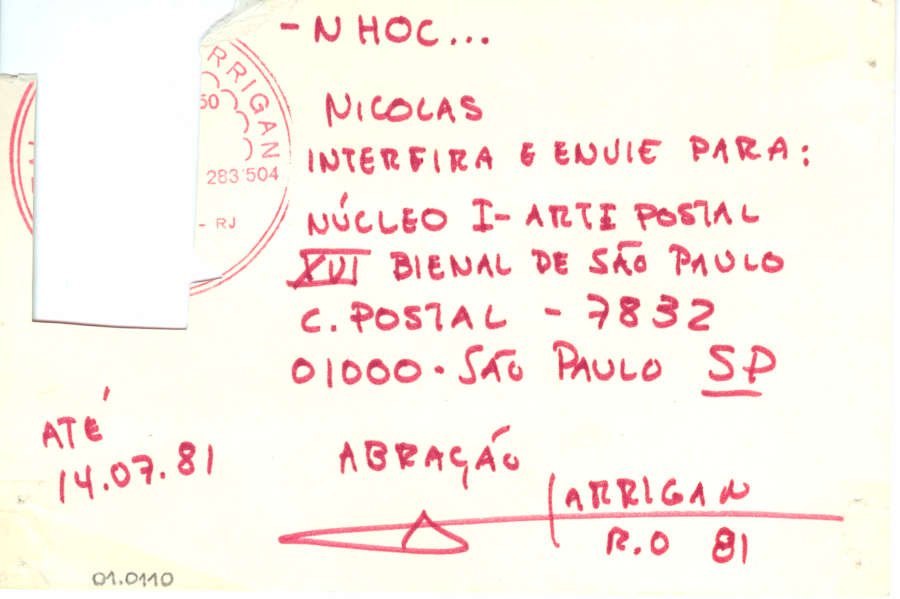 - NHOC...
RRIGAN
50
283 504
- RJ
NICOLAS
INTERFIRA E ENVIE PARA:
NÚCLEO I - ARTE POSTAL
XVI BIENAL DE SÃO PAULO
C. POSTAL - 7832
01000 - SÃO PAULO SP
ATÉ
14.07.81
ABRAÇÃO
ARRIGAN
R.O 81
01.0110